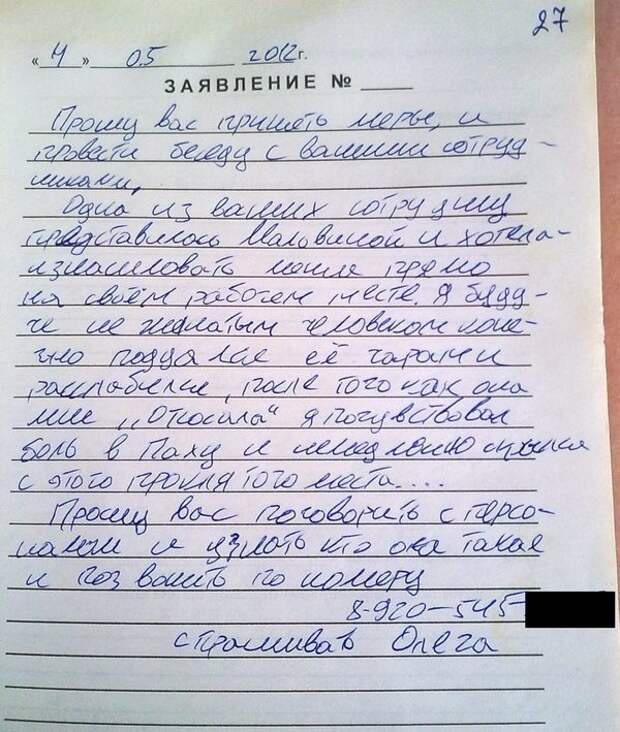 27
"4" 05 2012г.
ЗАЯВЛЕНИЕ №
Прошу вас принять меры, и
провести беседу с вашими сотруд-
никами,
Одна из ваших сотрудниц
представилась Мальвиной и хотела
изнасиловать меня прямо
на своём рабочем месте. Я буду-
чи не женатым человеком коне-
чно поддался её чарам и
расслабился, после того как она
мне ,,Откосала" я почувствовал
боль в Паху и немедленно
с этого проклятого места....
Прошу вас поговорить с персо-
налом и узнать кто она такая
и позвонить по номеру
8-920-545-
спрашивать Олега